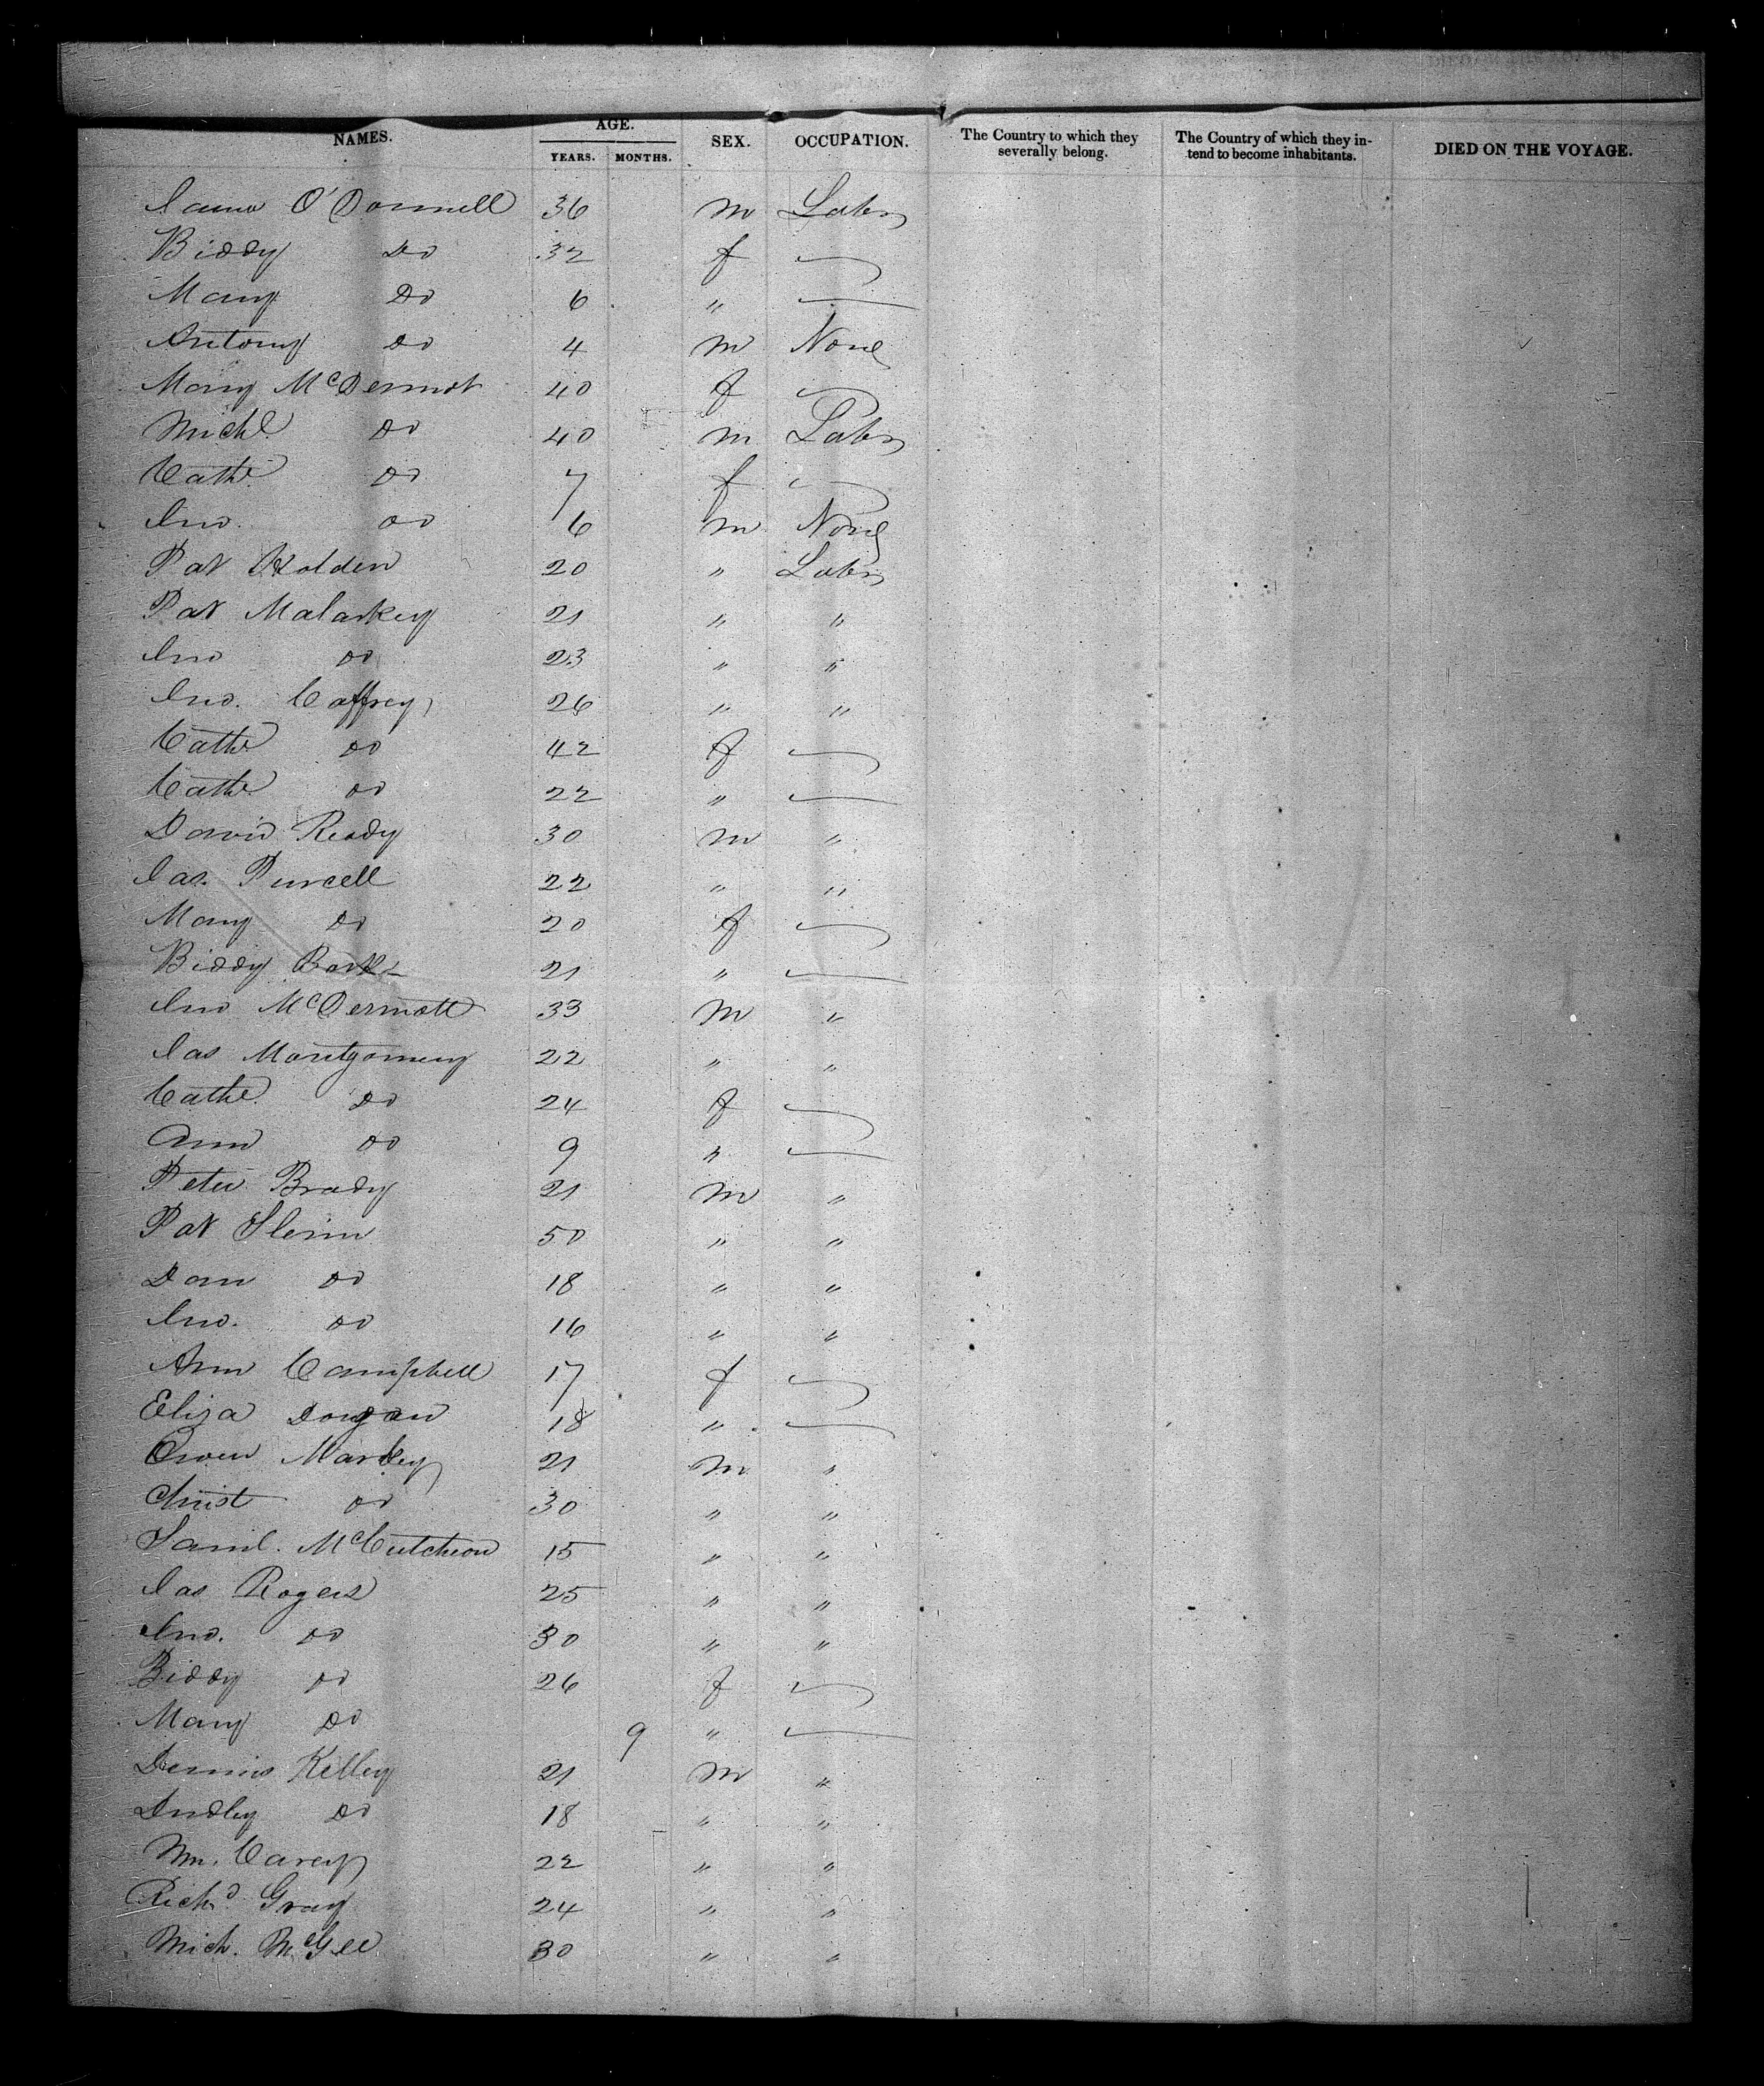 NAMES. AGE. SEX. OCCUPATION. The Country to which they severally belong. The Country of which they intend to become inhabitants. DIED ON THE VOYAGE.
YEARS. MONTHS.
James O'Donnell 36 m Labr
Biddy Do 32 f
Mary Do 6 "
Antony Do 4 m None
Mary McDermot 40 f
Michl. Do 40 m Labr
Cathe. Do 7 f
Jno. Do 6 m None
Pat Holden 20 " Labr
Pat Malarkey 21 " "
Jno Do 23 " "
Jno. Caffrey 26 " "
Cathe Do 42 f
Cathe Do 22 "
David Ready 30 m "
Jas. Purcell 22 " "
Mary Do 20 f
Biddy 21 "
Jno McDermott 33 m "
Jas Montgomery 22 " "
Cathe. Do 24 f
Ann Do 9 "
Peter Brady 21 m "
Pat Slevin 50 " "
Dan Do 18 " "
Jno. Do 16 " "
Ann Campbell 17 f
Eliza Dougan 18 "
Owen Markey 21 m "
Christ Do 30 " "
Saml. McCutcheon 15 " "
Jas Rogers 25 " "
Jno. Do 30 " "
Biddy Do 26 f
Mary Do 9 "
Dennis Kelley 21 m "
Dudley Do 18 " "
Wm. Carey 22 " "
Richd. Gray 24 " "
Mich. McGee 30 " "